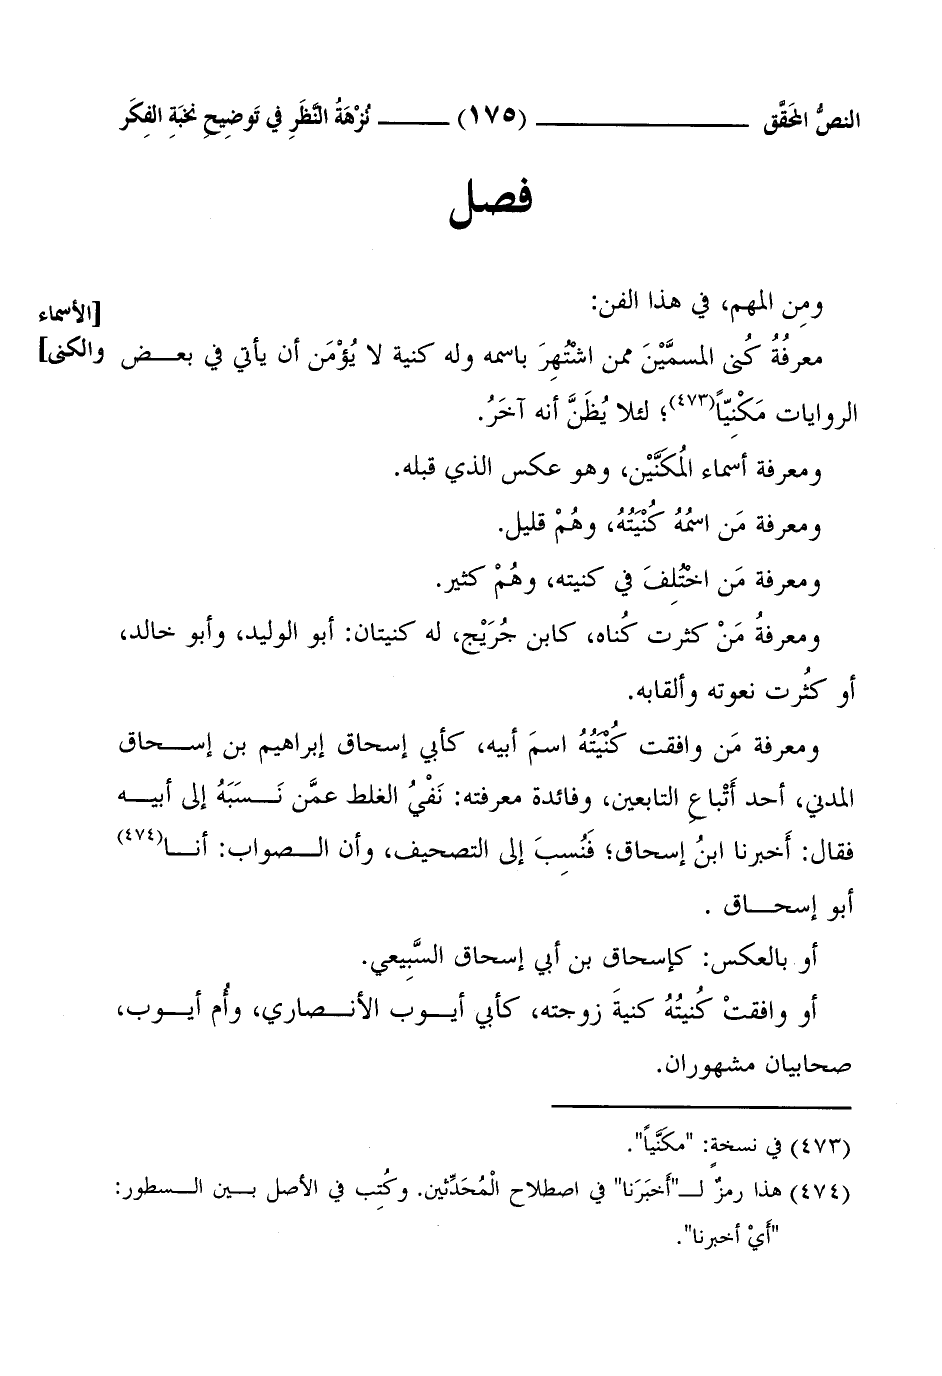 النصُّ المحَقَّق ــــــــــــــــ (١٧٥) ــــــ نُزْهَةُ النَّظَرِ في تَوضِيحِ نخبَةِ الفِكَر
فصل
ومِن المهم، في هذا الفن:
[الأسماء
معرفةُ كُنى المسمَّيْنَ ممن اشْتُهِرَ باسمه وله كنية لا يُؤْمَن أن يأتي في بعـض
والكنى]
الروايات مَكْنِيّاً(٤٧٣)؛ لئلا يُظَنَّ أنه آخَرُ.
ومعرفة أسماء المُكَنَّيْن، وهو عكس الذي قبله.
ومعرفة مَن اسمُهُ كُنْيَتُهُ، وهُمْ قليل.
ومعرفة مَن اختُلِفَ في كنيته، وهُمْ كثير.
ومعرفةُ مَنْ كثرت كُناه، كابن جُرَيْج، له كنيتان: أبو الوليد، وأبو خالد،
أو كثُرت نعوته وألقابه.
ومعرفة مَن وافقت كُنْيَتُهُ اسمَ أبيه، كأبي إسحاق إبراهيم بن إسـحاق
المدني، أحد أَتْباعِ التابعين، وفائدة معرفته: نَفْيُ الغلط عمَّن نَـسَبَهُ إلى أبيـه
فقال: أَخبرنا ابنُ إسحاق؛ فَنُسِبَ إلى التصحيف، وأن الـصواب: أنـا(٤٧٤)
أبو إسحـاق .
أو بالعكس: كإسحاق بن أبي إسحاق السَّبِيعي.
أو وافقتْ كُنيتُهُ كنيةَ زوجته، كأبي أيـوب الأنـصاري، وأُم أيـوب،
صحابيان مشهوران.
(٤٧٣) في نسخةٍ: "مكَنَّياً".
(٤٧٤) هذا رمزٌ لـ"أَخبَرَنا" في اصطلاح الْمُحَدِّثين. وكُتِب في الأصل بـين الـسطور:
"أَيْ أخبرنا".